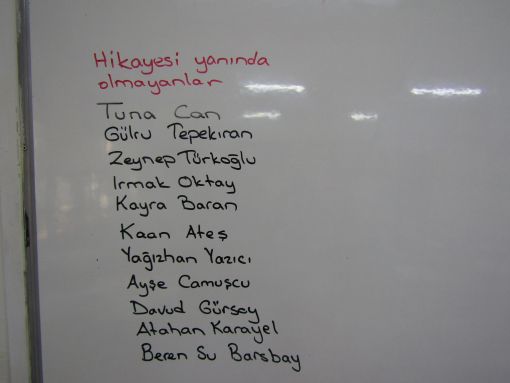 Hikayesi yanında
olmayanlar
Tuna Can
Gülru Tepekıran
Zeynep Türkoğlu
Irmak Oktay
Kayra Baran
Kaan Ateş
Yağızhan Yazıcı
Ayşe Camuşcu
Davud Gürsoy
Atahan Karayel
Beren Su Barsbay